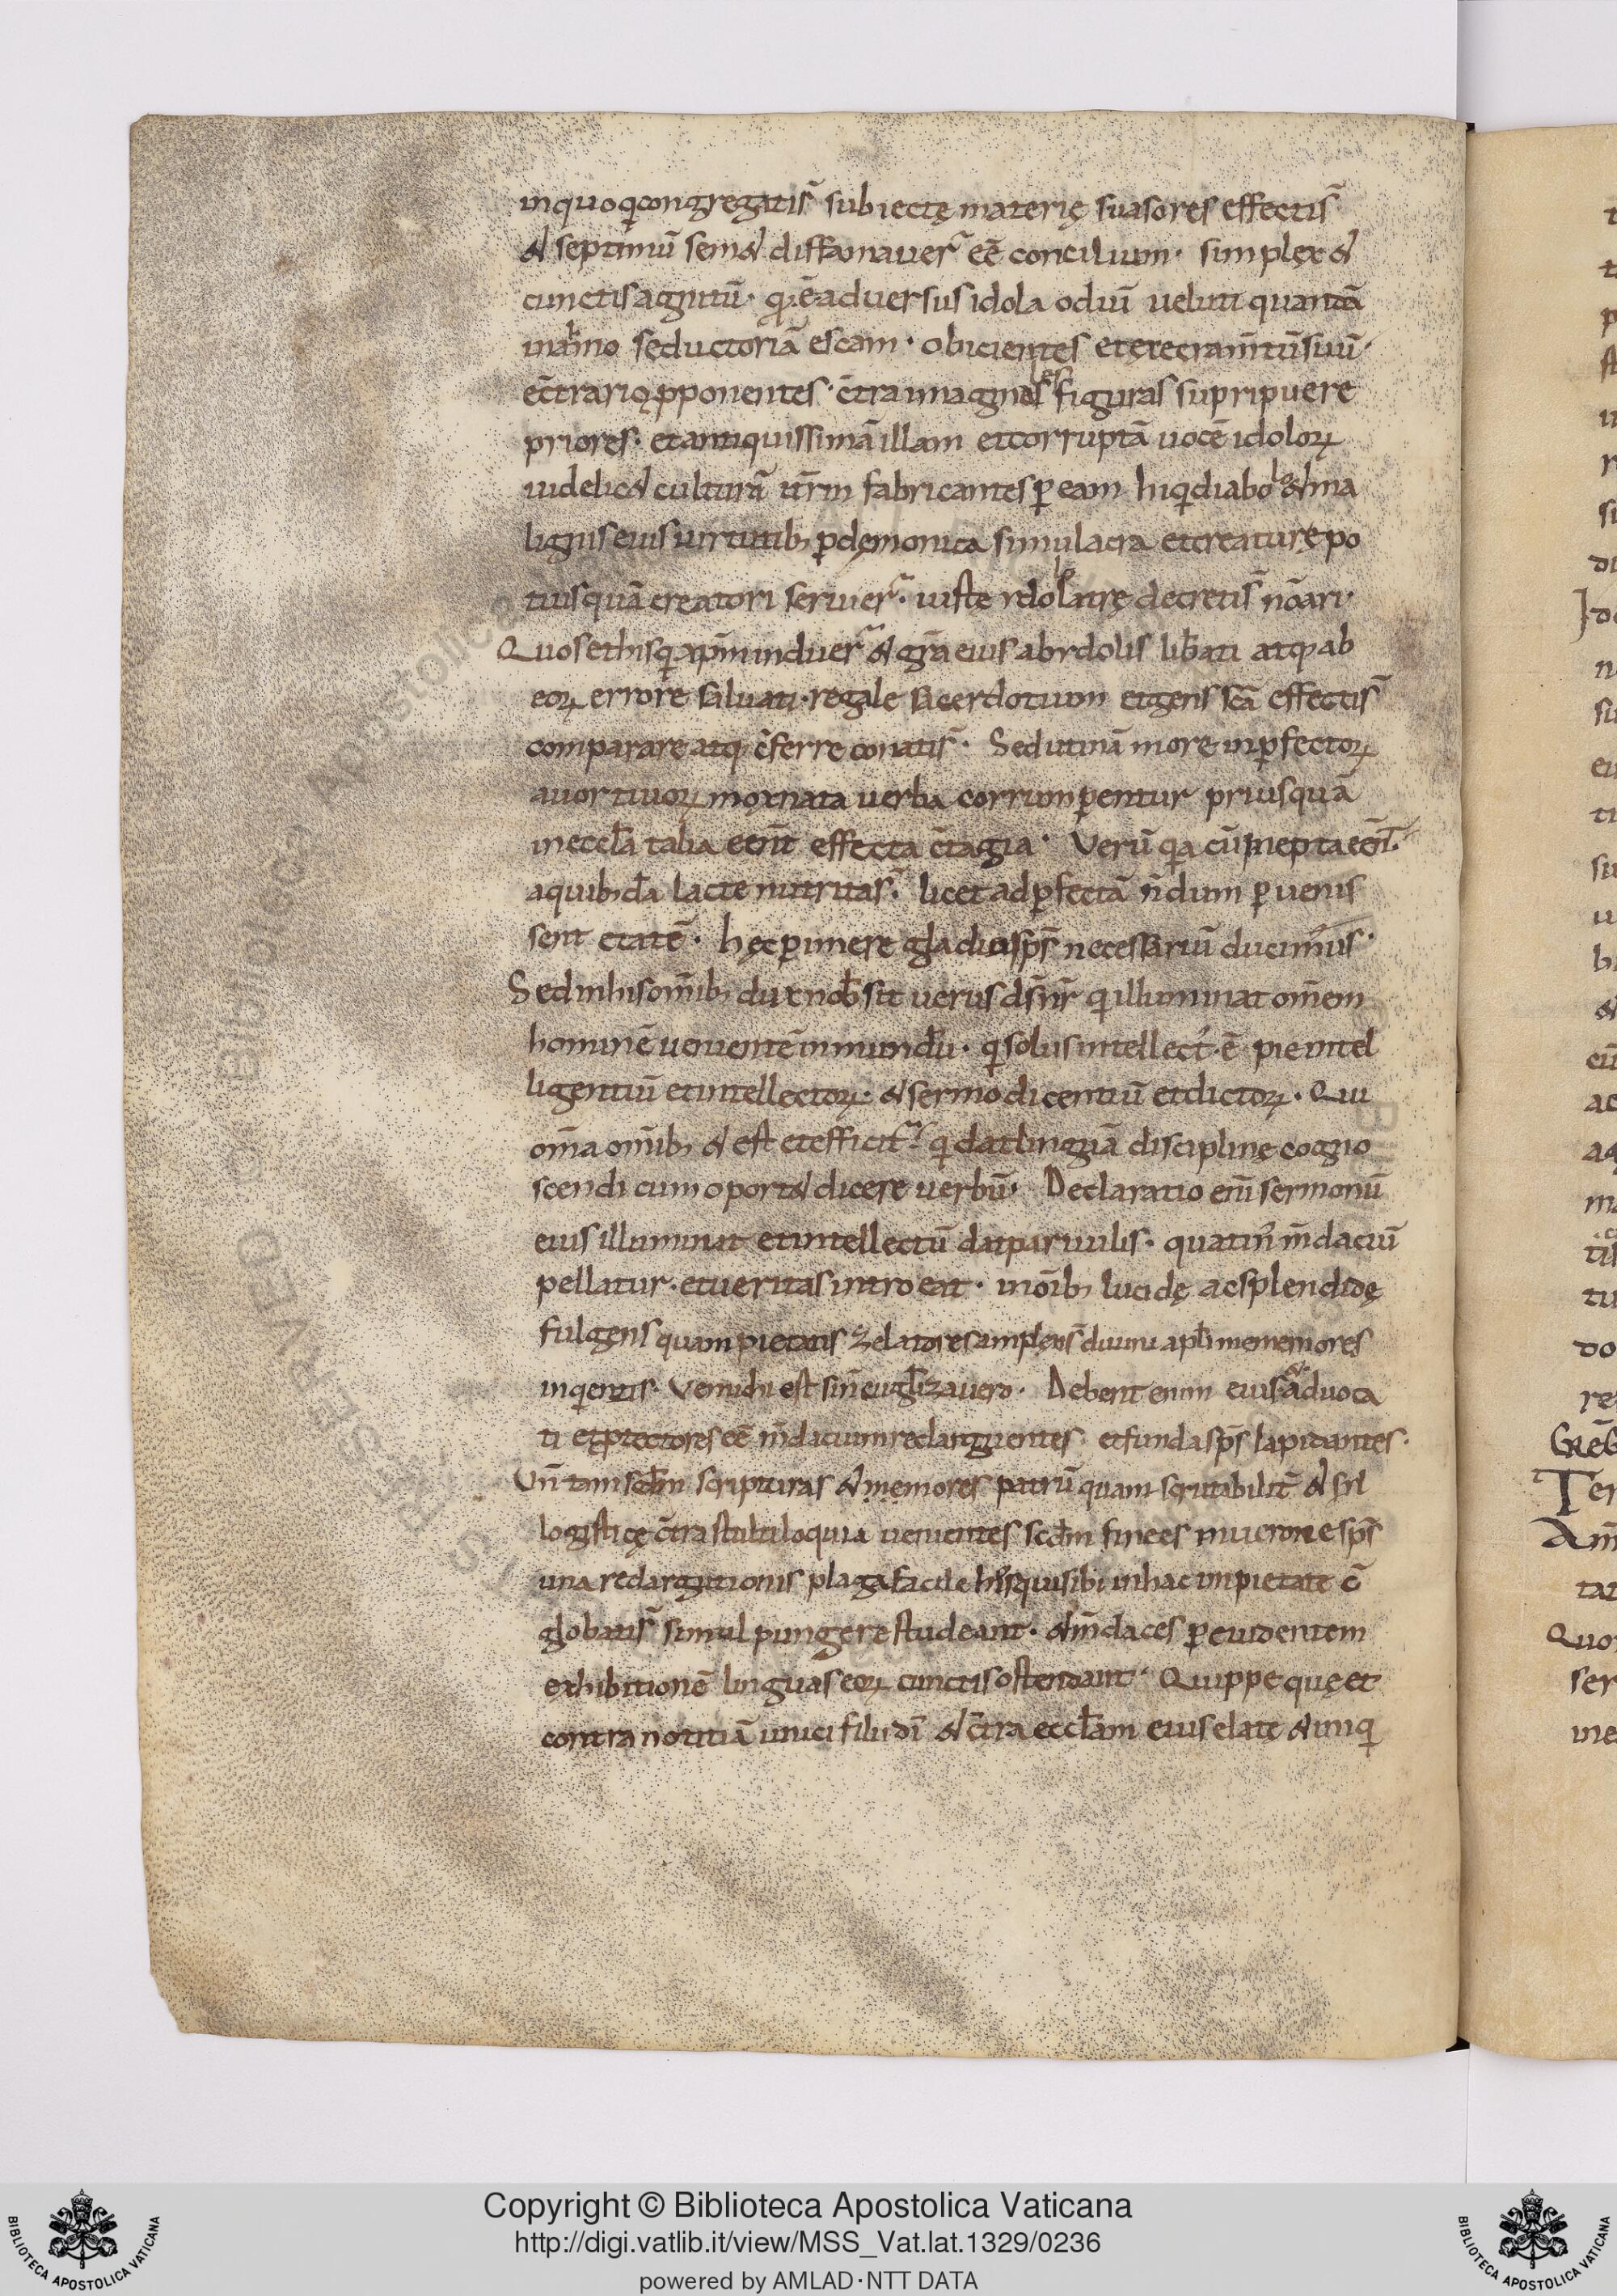 inquo q̇congregatis̃ subiectę materię suasores effectis̃
& septimũ sem& diffamauer̃ eẽ concilium· simplex &
cunctis agnitũ· qđ ẽ aduersus idola odiũ ueluti quantã
inhamo seductoriã escam· obicientes etęxecram̃tũ siuũ·
ec̃trario ꝓponentes· c̃tra imagines figuras supripuere
priores· etantiquissimã illam etcorruptã uocẽ idoloꝝ
uidelic& culturã it̃r̃m fabricantes ꝑ eam hiq̇diabolo &ma
lignis eius uirtutibꝫ ꝑdęmonica simulacra etcreaturę po
tius quã creatori seruier̃· iuste idololatrę decretis̃ nõari·
Quosethisq̇ xp̃m induer̃ & grã eius abidolis lib̃ati atqꝫ ab
eoꝝ errore saluati· regale sacerdotium etgens sc̃a effectis̃
comparare atqꝫ c̃ferre conatis̃· Sed utinã more inꝑfectoꝝ
auortiuoꝝ mox nata uerba corrumperentur priusquã
inęccl̃a talia eẽnt effecta c̃tagia· Verũ q̇a cũ inepta eẽnt·
aquibꝫdã lacte nutritas̃· licet adꝑfectã ñdum ꝑuenis
sent etatẽ· hęc ꝑimere gladiuisps̃ necessariũ ducimus·
Sed inhis omĩbꝫ dux nob̃ sit uerus ds̃ nr̃ q̇ illuminat om̃em
hominẽ uenientẽ inmundũ· q̇ solus intellect᾽· ẽ pie intel
ligentiũ etintellectoꝝ· & sermo dicentiũ etdictoꝝ· Qui
om̃a omĩbꝫ & est etefficit᷑ q̇ dat linguã disciplinę cogno
scendi cum oport& dicere uerbũ· Declaratio enĩ sermonũ
eius illuminat etintellectũ dat paruulis· quatin᾽ m̃daciũ
pellatur· etueritas introeat· inoĩbꝫ lucidę ac splendidę
fulgens quam pietatis zelatores amplexs̃ diuini apl̃i mememores
inq̇entis· Vemichi est sin̄ euuḡlizauero· Debent enim eius &aduoca
ti etꝓtectores eẽ m̃dacium redarguentes· etfundasps̃ lapidantes·
Un̄ tam scd̃m scripturas & memores patrũ quam scrutabilit̃ & sil
logisticę c̃tra stultiloquia uenientes scd̃m finees mucrone sps̃
una redargutionis plaga facile hisquisibi inhac impietate c̃
globatis̃ simul pungere studeant· &m̃daces ꝑ euidentem
exhibitionẽ linguas eoꝝ cunctis ostendant· Quippe quę et
contra notitiã unici filii dĩ & c̃tra ęccl̃am eius elate & iniq̇
Copyright © Biblioteca Apostolica Vaticana
http://digi.vatlib.it/view/MSS_Vat.lat.1329/0236
powered by AMLAD·NTT DATA
BIBLIOTECA APOSTOLICA VATICANA
BIBLIOTECA APOSTOLICA VATICANA